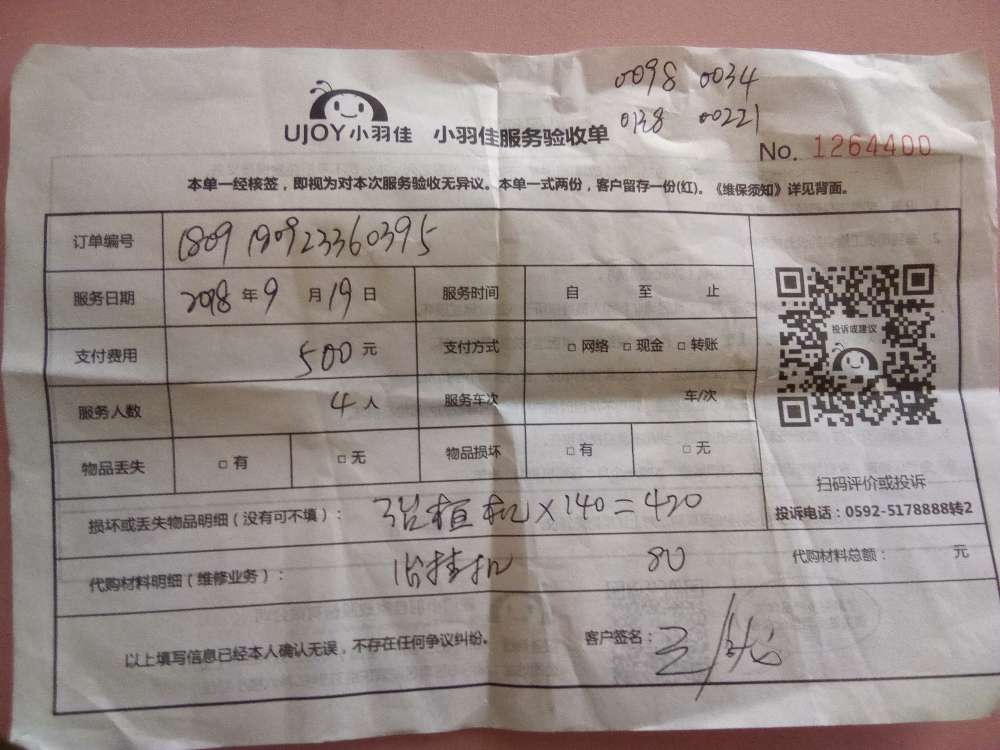 0098 0034
0138 00221
UJOY小羽佳 小羽佳服务验收单
No. 1264400
本单一经核签，即视为对本次服务验收无异议。本单一式两份，客户留存一份(红)。《维保须知》详见背面。
订单编号 1809190923360395
服务日期 2018 年 9 月 19 日 服务时间 自 至 止
支付费用 500 元 支付方式 □ 网络 □ 现金 □ 转账
投诉或建议
服务人数 4 人 服务车次 车/次
物品丢失 □ 有 □ 无 物品损坏 □ 有 □ 无
扫码评价或投诉
投诉电话：0592-5178888转2
损坏或丢失物品明细（没有可不填）： 3台柜机×140=420
代购材料明细（维修业务）： 1台挂机 80 代购材料总额： 元
以上填写信息已经本人确认无误，不存在任何争议纠纷。 客户签名：